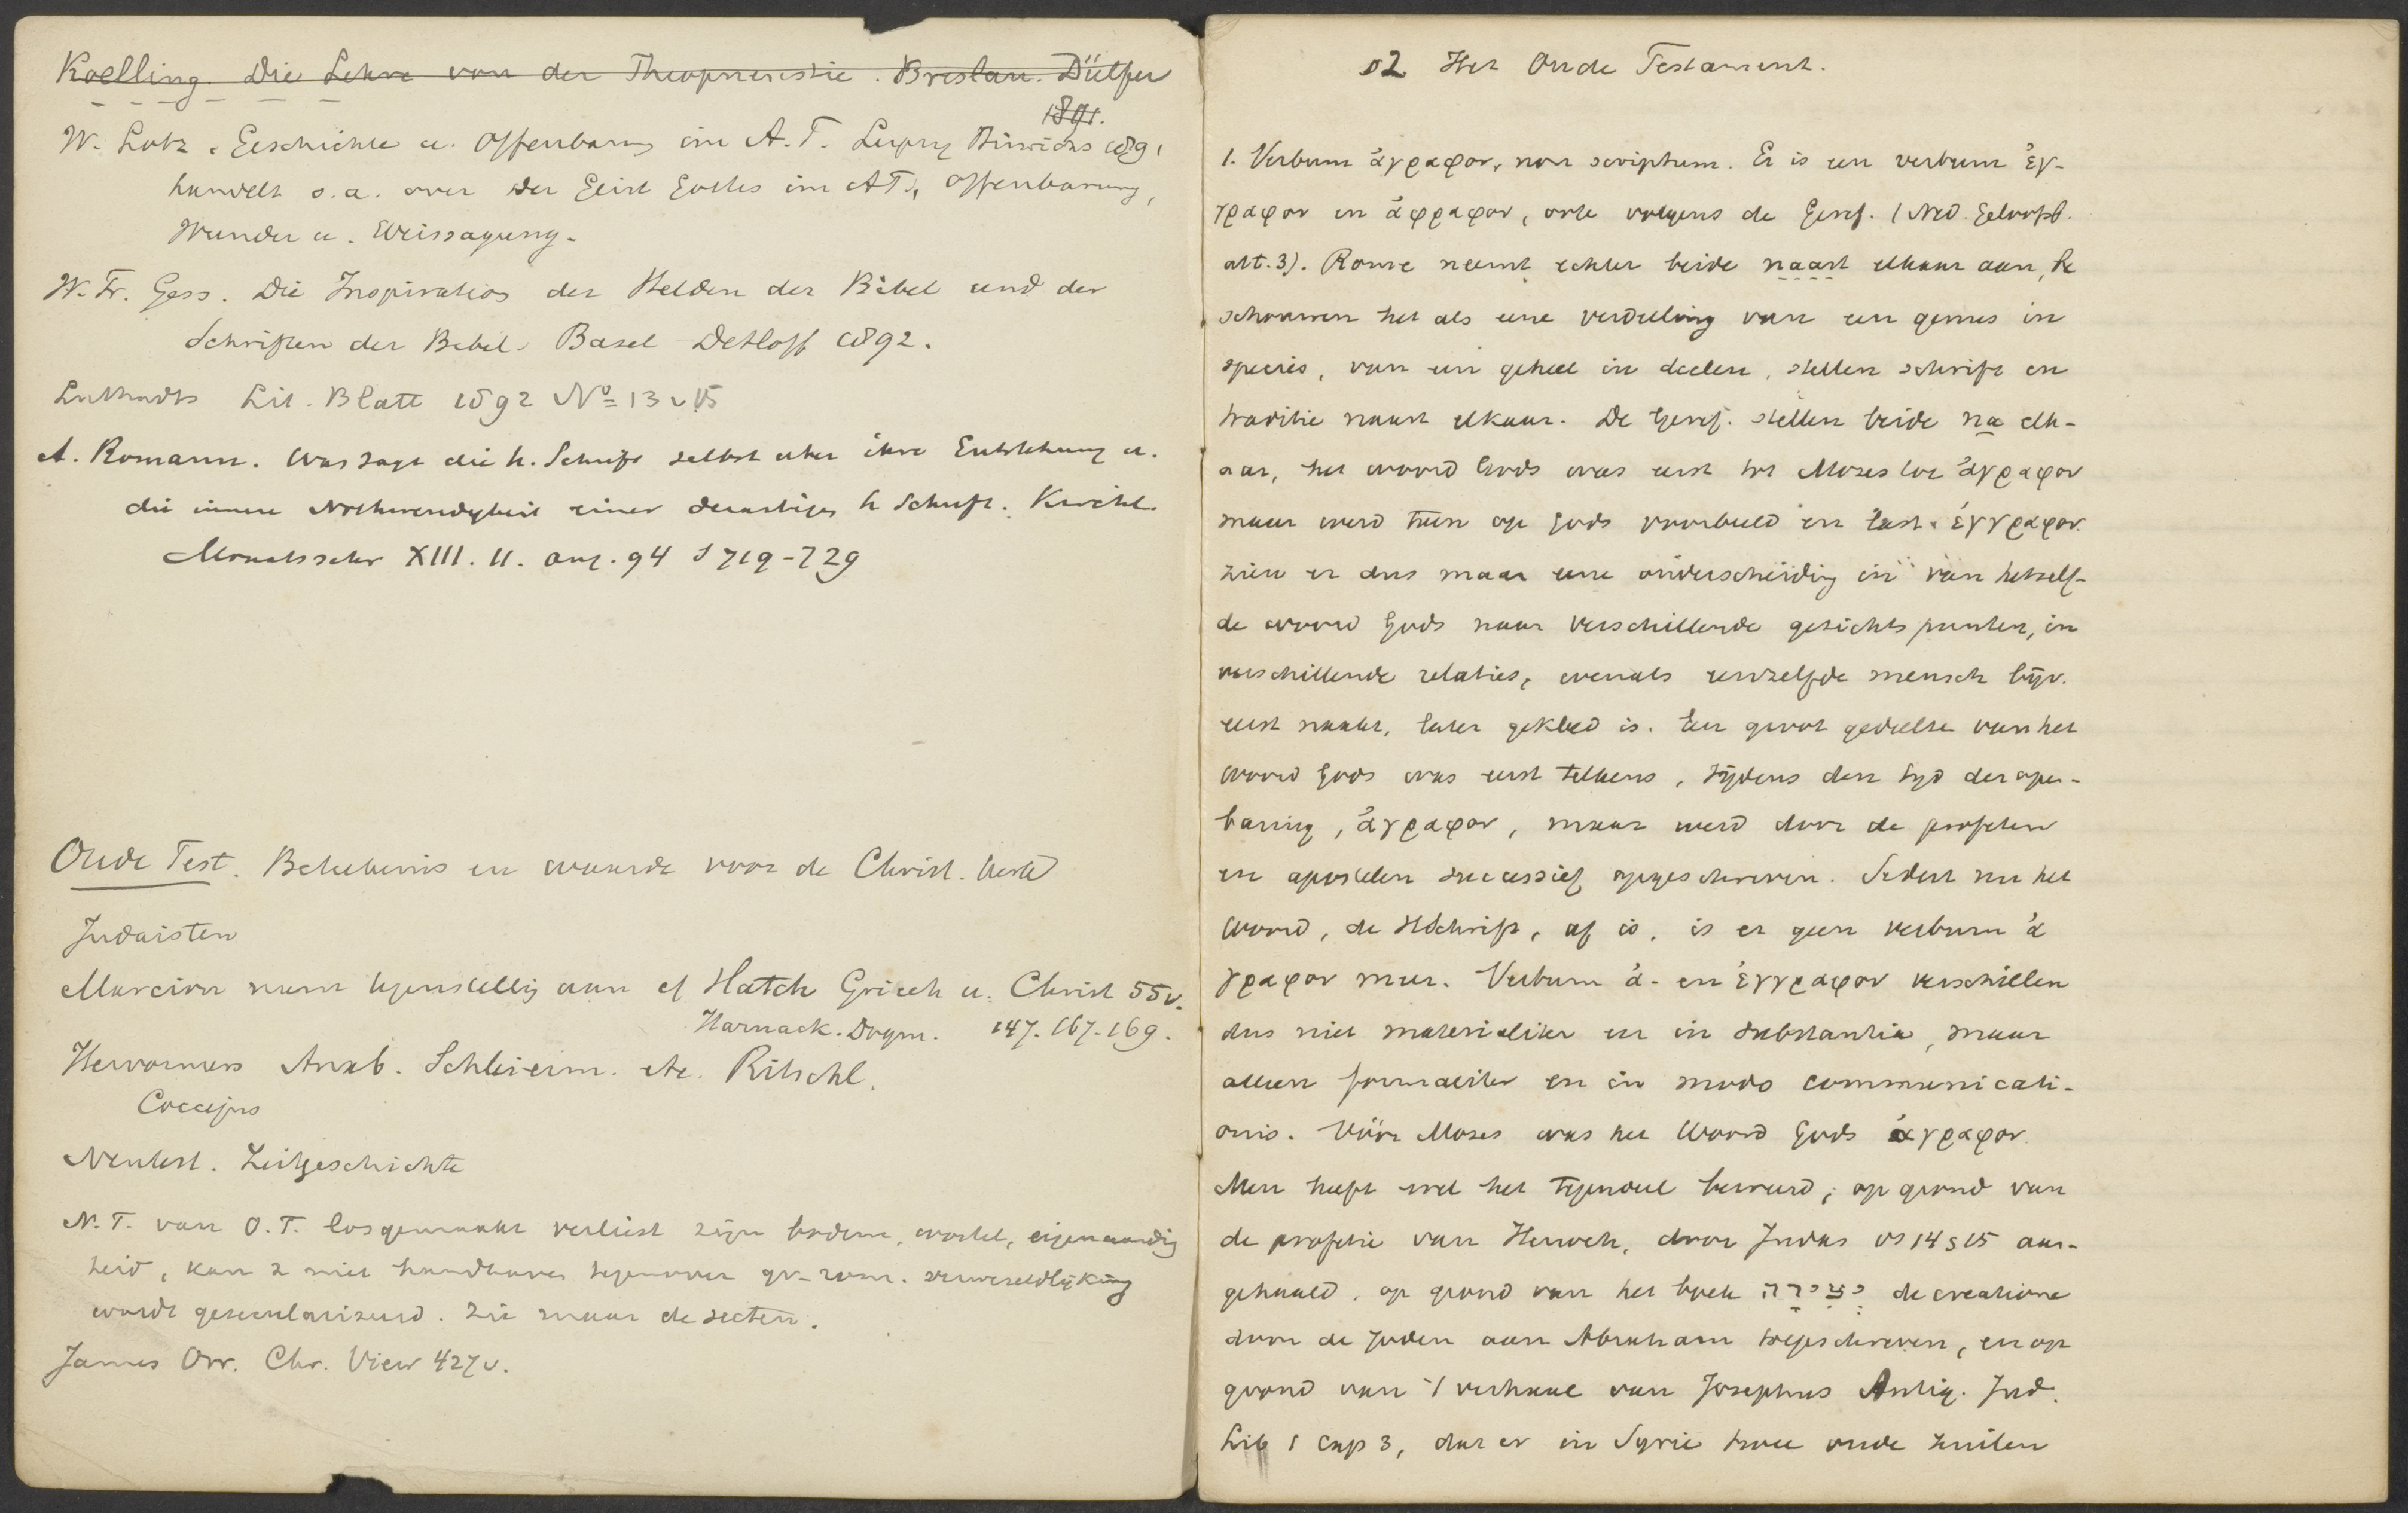 Koelling. Die Lehre von der Theopneustie. Breslau. Dülfer
1891.
W. Lotz. Geschichte u. Offenbarung im A.T. Leipzig Hinrichs 1891
handelt o.a. over der Geist Gottes im AT, Offenbarung,
Wunder u. Weissagung.
W. Fr. Gess. Die Inspiration der Helden der Bibel und der
Schriften der Bibel. Basel Detloff 1892.
Luthardts Lit. Blatt 1892 No 13 v 15
A. Romann. Was sagt die h. Schrift selbst über ihre Entstehung u.
die innere Nothwendigkeit einer derartigen h Schrift. Kirchl.
Monatsschr XIII. 11. Aug. 94 S 719-729
Oude Test. Beteekenis en waarde voor de Christ. kerk
Judaisten
Marcion nam tegenstelling aan cf Hatch Griech u. Christ 55v.
Harnack. Dogm. 147. 167-169.
Hervormers Anab. Schleierm. etc. Ritschl.
Coccejus
Neutest. Zeitgeschichte
N.T. van O.T. losgemaakt verliest zijn bodem, wortel, eigenaardig
heid, kan z niet handhaven tegenover gr-rom. verwereldlijking
wordt geseculariseerd. Zie maar de secten.
James Orr. Chr. View 427v.
§2 Het Oude Testament.
1. Verbum ἄγραφον, non scriptum. Er is een verbum ἔγ-
γραφον en ἄγραφον, ook volgens de Geref. (Ned. Geloofsb.
art. 3). Rome neemt echter beide naast elkaar aan, be
schouwen het als eene verdeeling van een genus in
species, van een geheel in deelen, stellen schrift en
traditie naast elkaar. De Geref. stellen beide na elk-
aar, het woord Gods was eerst tot Mozes toe ἄγραφον
maar werd toen op Gods voorbeeld en last ἔγγραφον.
zien er dus maar eene onderscheiding in van hetzelf-
de woord Gods naar verschillende gezichtspunten, in
verschillende relaties, evenals eenzelfde mensch bijv.
eerst naakt, later gekleed is. Een groot gedeelte van het
woord Gods was eerst telkens, tijdens den tijd der open-
baring, ἄγραφον, maar werd door de profeten
en apostelen successief opgeschreven. Sedert nu het
Woord, de HSchrift, af is, is er geen verbum ἄ
γραφον meer. Verbum ἄ- en ἔγγραφον verschillen
dus niet materialiter en in substantia, maar
alleen formaliter en in modo communicati-
onis. Vóór Mozes was het Woord Gods ἄγραφον.
Men heeft wel het tegendeel beweerd, op grond van
de profetie van Henoch, door Judas vs 14 & 15 aan-
gehaald, op grond van het boek יצירה de creatione
door de Joden aan Abraham toegeschreven, en op
grond van 't verhaal van Josephus Antiq. Jud.
Lib 1 cap 3, dat er in Syrie twee oude zuilen